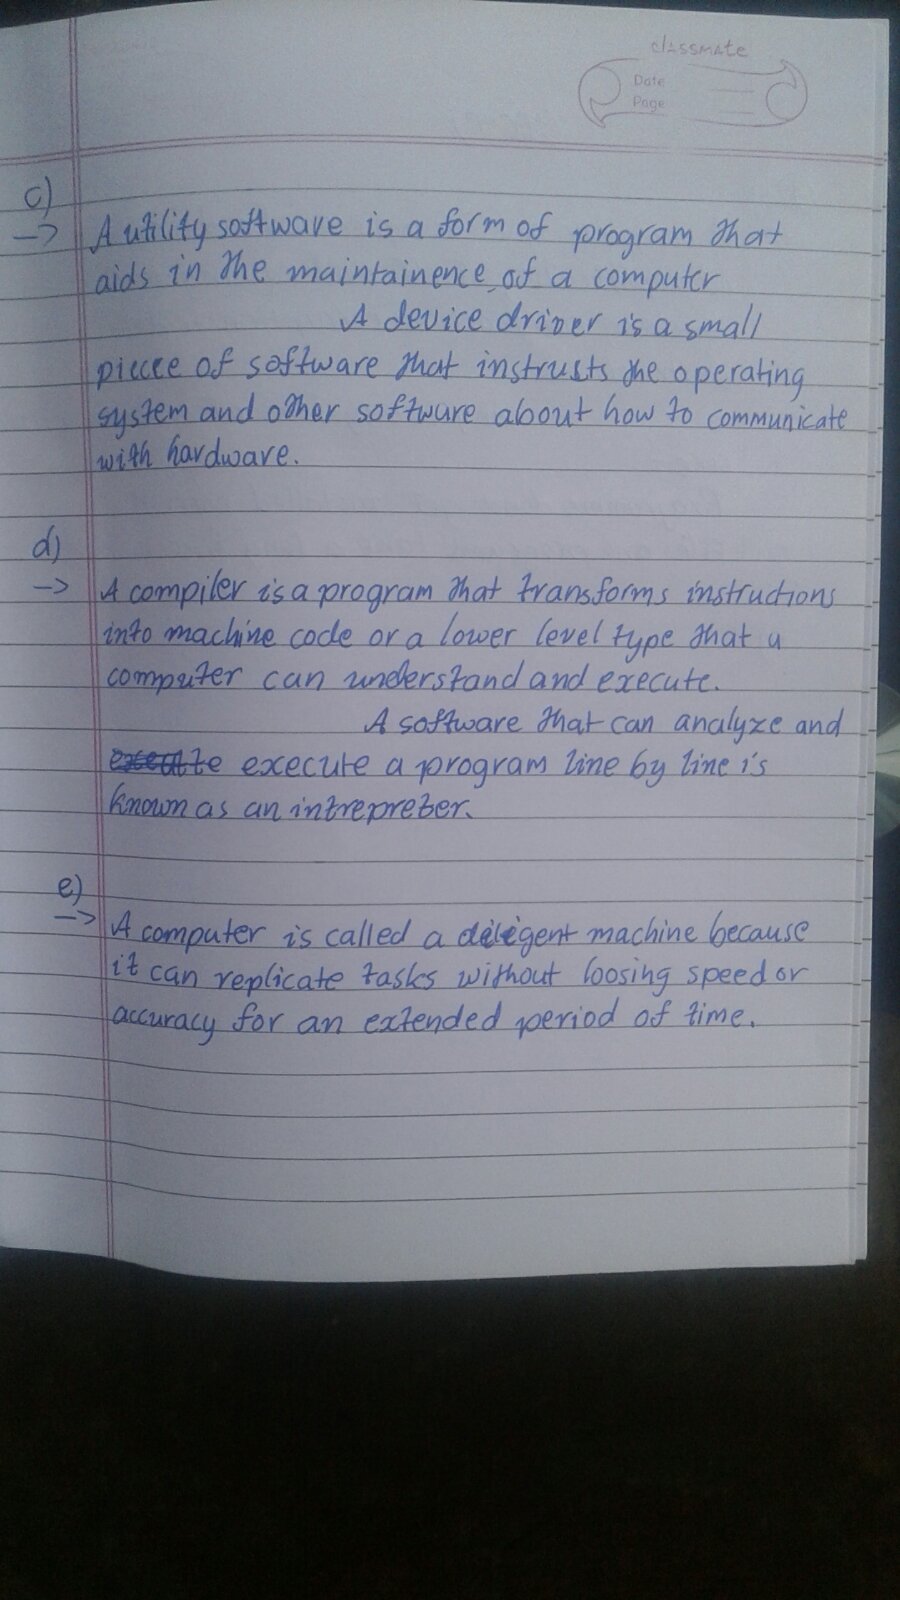 classmate
Date
Page
c)
→ A utility software is a form of program that
aids in the maintainence of a computer
A device driver is a small
piecce of software that instructs the operating
system and other software about how to communicate
with hardware.
d)
→ A compiler is a program that transforms instructions
into machine code or a lower level type that a
computer can understand and execute.
A software that can analyze and
execute a program line by line is
known as an intrepreter.
e)
→ A computer is called a diligent machine because
it can replicate tasks without loosing speed or
accuracy for an extended period of time.